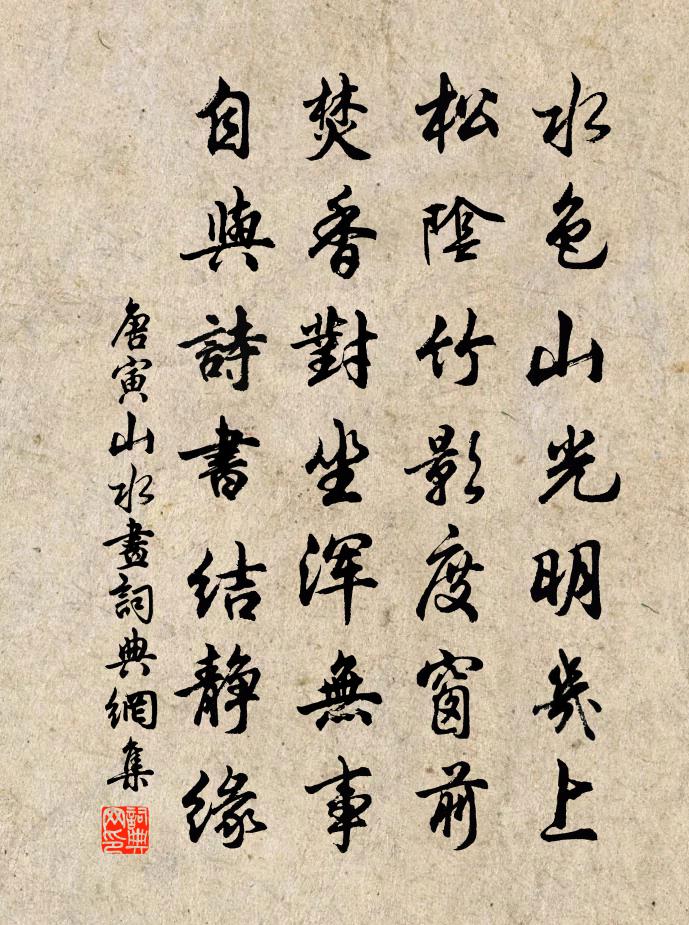 水色山光明幾上
松陰竹影度窗前
焚香對坐渾無事
自與詩書結静緣
唐寅山水畫詞典網集
詞典網印